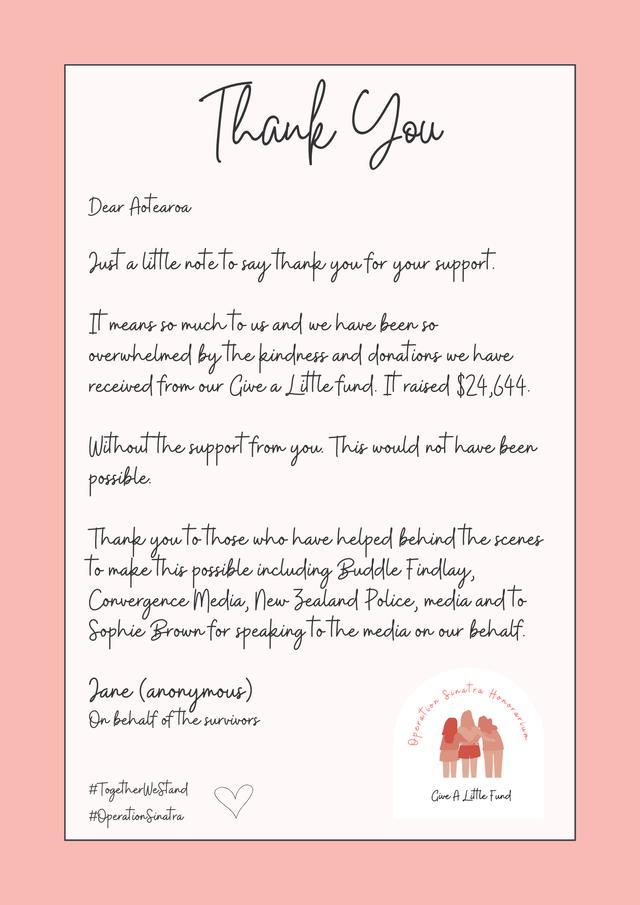 Thank You
Dear Aotearoa
Just a little note to say thank you for your support.
It means so much to us and we have been so
overwhelmed by the kindness and donations we have
received from our Give a Little fund. It raised $24,644.
Without the support from you. This would not have been
possible.
Thank you to those who have helped behind the scenes
to make this possible including Buddle Findlay,
Convergence Media, New Zealand Police, media and to
Sophie Brown for speaking to the media on our behalf.
Jane (anonymous)
On behalf of the survivors
#TogetherWeStand
#OperationSinatra
Operation Sinatra Honorarium
Give A Little Fund